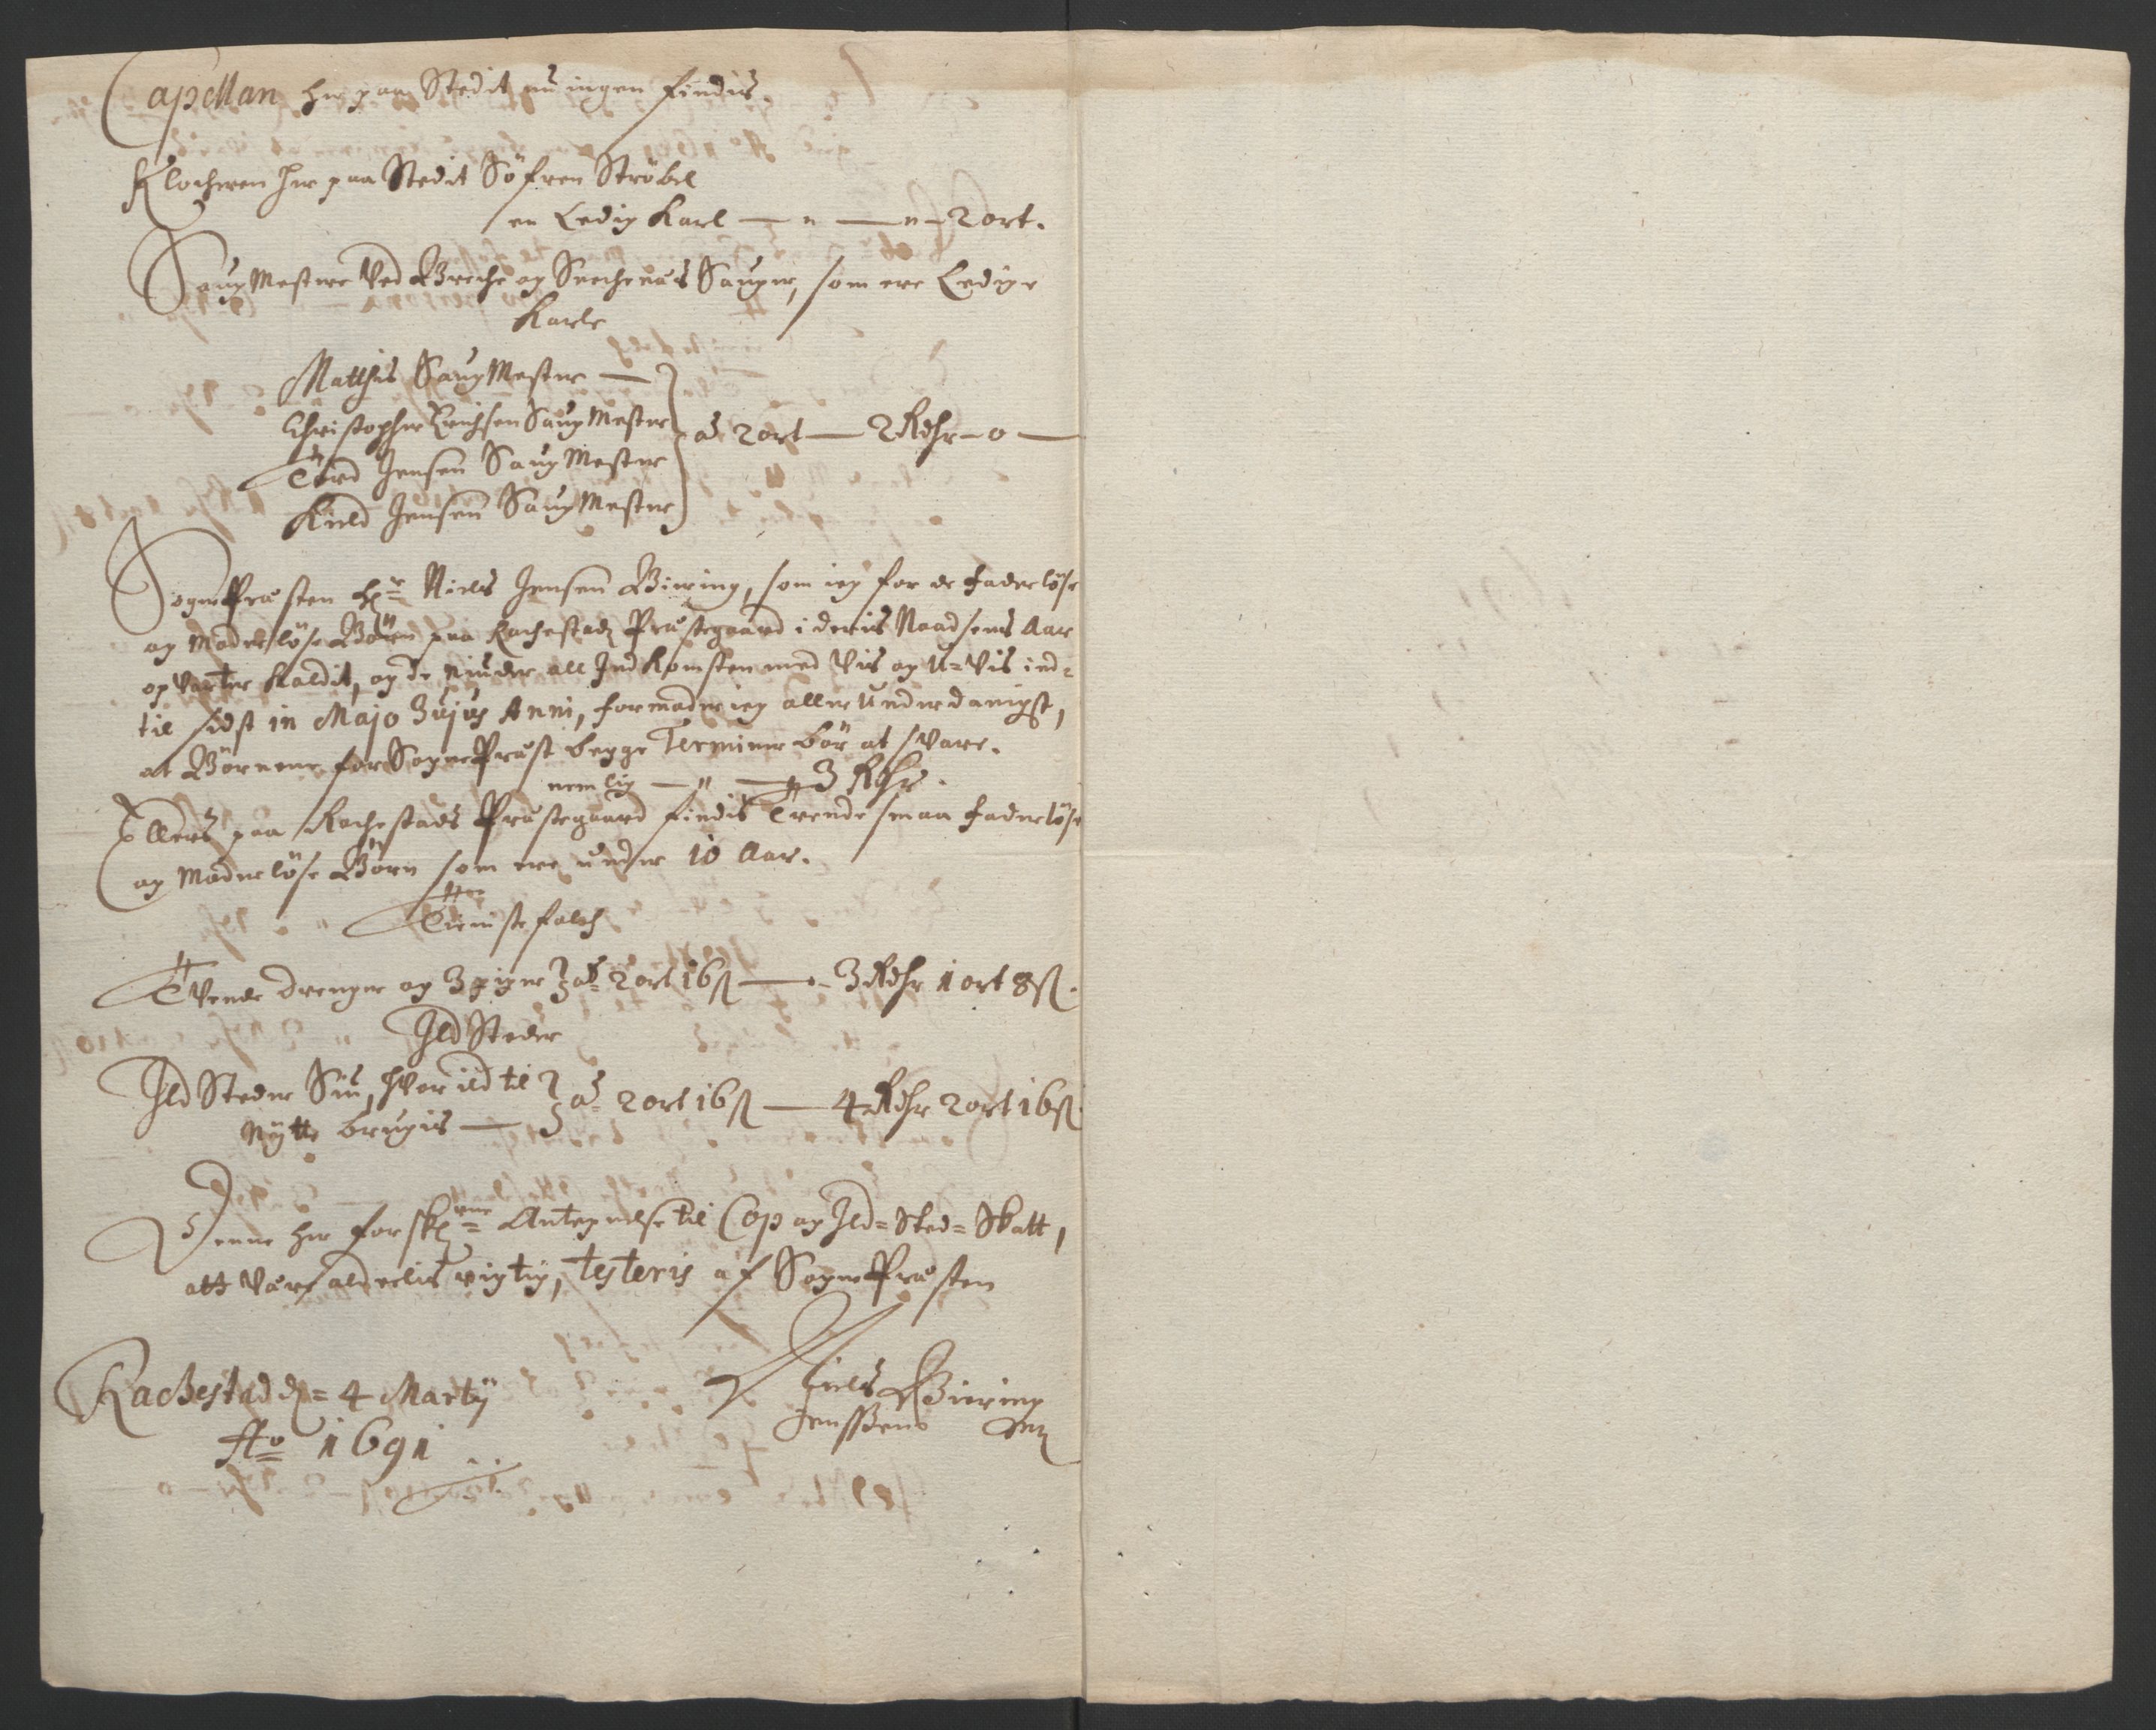 Capellan her paa Stedit nu ingen findis.
Klocheren her paa Stedit Söfren Ströbel
en Ledig Karl — " — " – 2 ort.
Saug Mestere Ved Breche og Sneckenæs Sauger, som ere Ledige
Karle
Matthis Saug Mester —
Christopher Erichsen Saug Mester
Tord Jensen Saug Mester
Kield Jensen Saug Mester
a 2 ort — 2 Rdhr – 0 —
Sogne Præsten Hr Niels Jensen Biering, som ieg for de faderlöse
og Moderlöse Börn paa Rachestad Præstegaard i deris Naadsens Aar
op Varter Kaldit, og de niuder all Ind Komsten med Vis og U=Vis ind=
til sidst in Majo Hujus Anni, formoder ieg aller Underdanigst,
at Börnene for Sogne Præst begge Terminer bör at svare.
nemlig — " — 3 Rdhr.
Ellers paa Rachestads Præstegaard findis Trende smaa faderlöse
og Moderlöse Börn som ere under 10 Aar.
Tieniste folch
Tvende drenger og 3 piger a 2 ort 16 ß — 3 Rdhr 1 ort 8 ß.
Ild Steder
Ild Steder Siu, hvor ild til
Nytte brugis —
a 2 ort 16 ß — 4 Rdhr 2 ort 16 ß
Denne her forskrne Antegnelse til Cop og Ild=Sted=Skatt,
att være alderlis rigtig, testeris af Sogne Præsten
Rachestad d = 4 Martij
Ao 1691
Niels Biering
Jenssøn